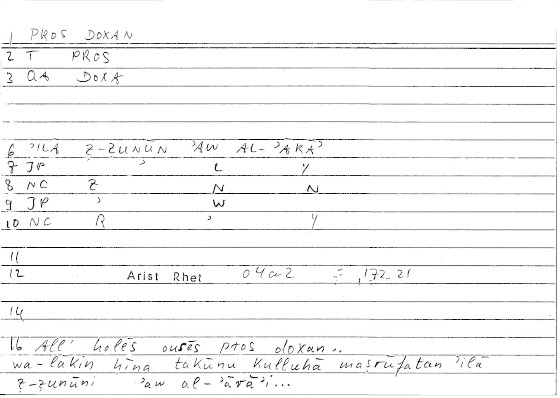 1 PROS DOXAN
2 T PROS
3 QA DOXA
6 ʾILĀ Ẓ-ẒUNŪN ʾAW AL-ʾĀRĀʾ
7 JP ʾ L Y
8 NC Ẓ N N
9 JP ʾ W
10 NC R ʾ Y
11
12 Arist Rhet 04a2 = ,172.21
14
16 All' holēs ousēs pros doxan..
wa-lākin hīna takūnu kulluhā maṣrūfatan ʾilā
ẓ-ẓunūni ʾaw al-ʾārāʾi...